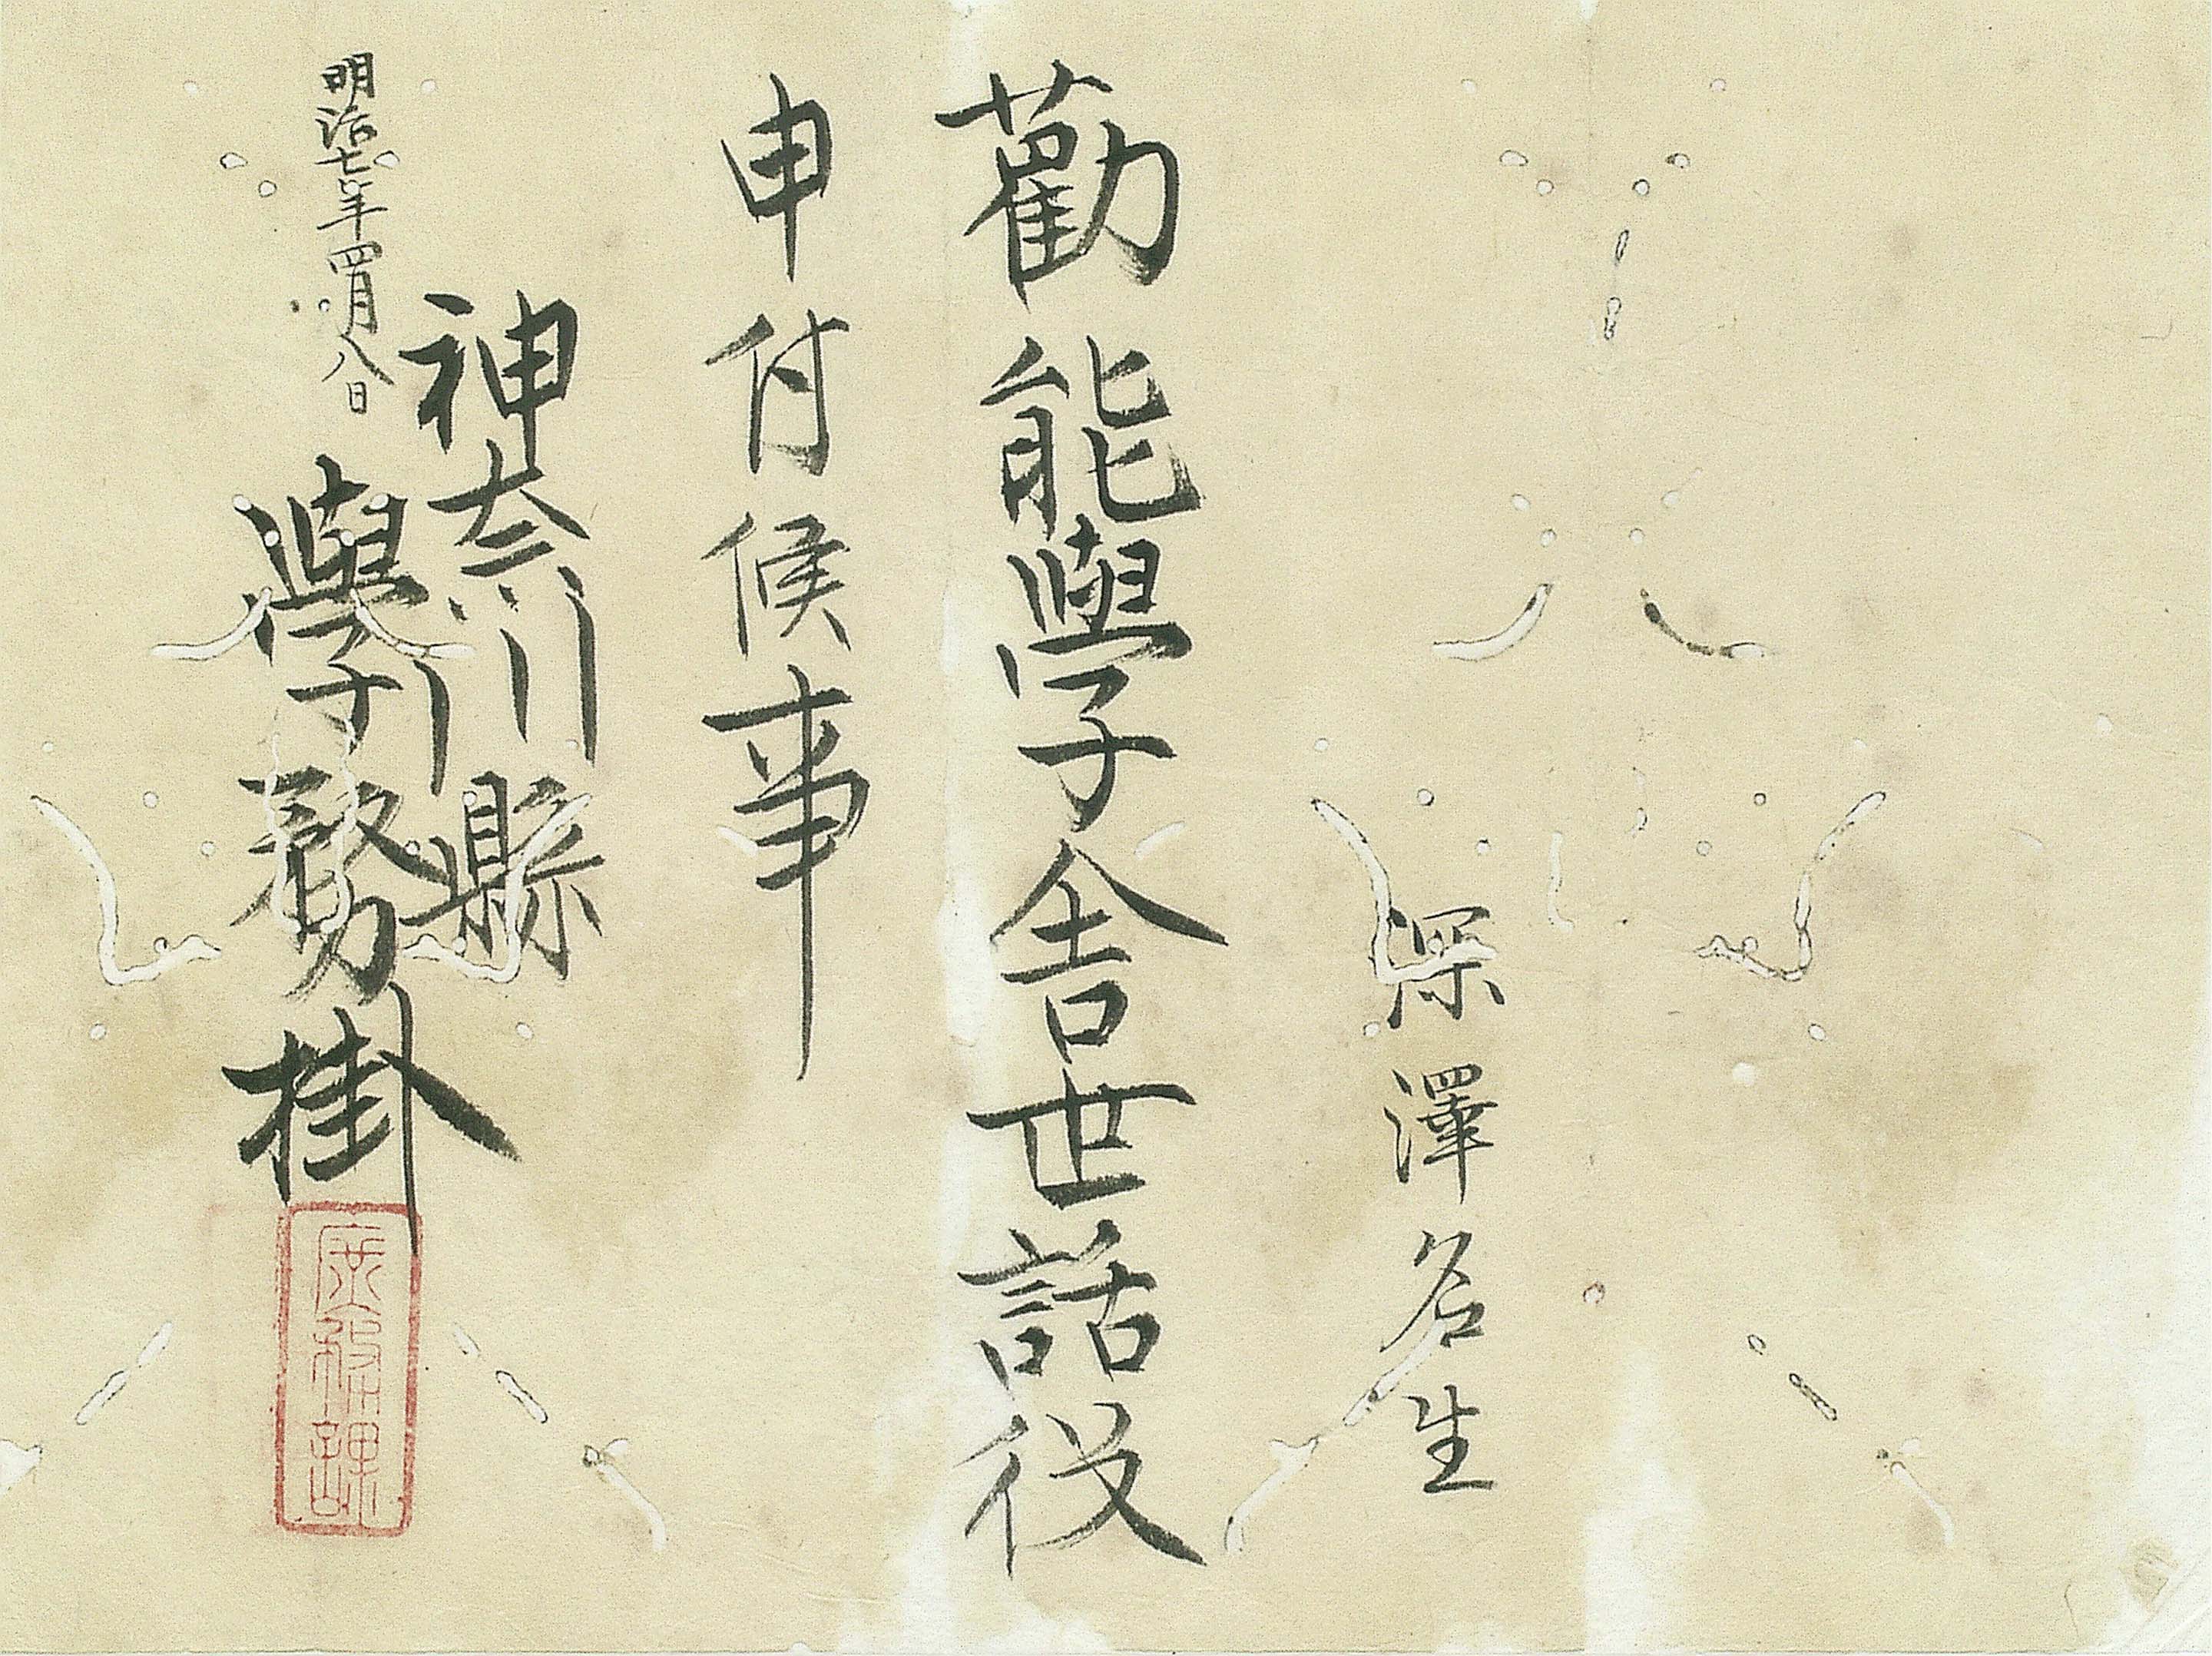 深澤名生
勸能學舎世話役
申付候事
明治七年四月八日
神奈川縣
學務掛
庶務課